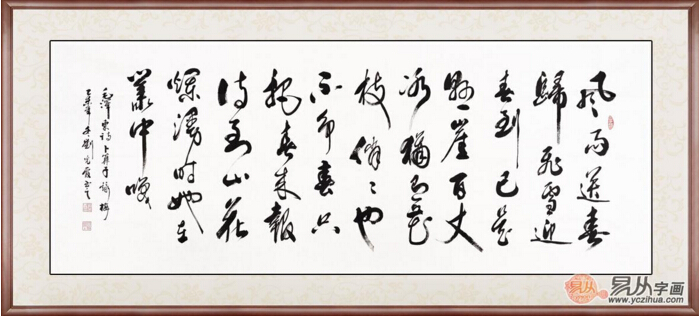 風雨送春
歸飛雪迎
春到已是
懸崖百丈
冰猶有花
枝俏々也
不争春只
把春来報
待到山花
爛漫時她在
叢中咲
毛澤東詞卜算子詠梅
乙未年冬劉光霞書
易从
易从字画
www.yczihua.com